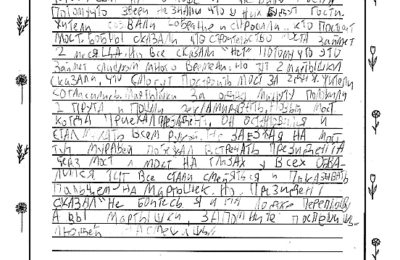 Потомучто звери незнали что у них будут гости.
Жители созвали собрание и спросили кто построит
мост. Бобры сказали, что строительство моста займёт
2 месяца. Но все сказали "нет" потому что это
займёт слишком много времени. Но тут 2 мартышки
сказали, что смогут построить мост за 2 дня. Жители
согласились. Мартышки за одну минуту положили
2 прута и пошли рекламировать новый мост
когда приехал президент он остановился и
стал махать всем рукой. Не заезжая на мост
тут муравей поехал встречать президента
через мост и мост на глазах у всех обва-
лился тут все стали смеяться и показывать
пальцем на мартышек. Но президент
сказал "Не бойтесь я и на лодке переплыву
А вы мартышки, запомните поспешишь
людей насмешишь